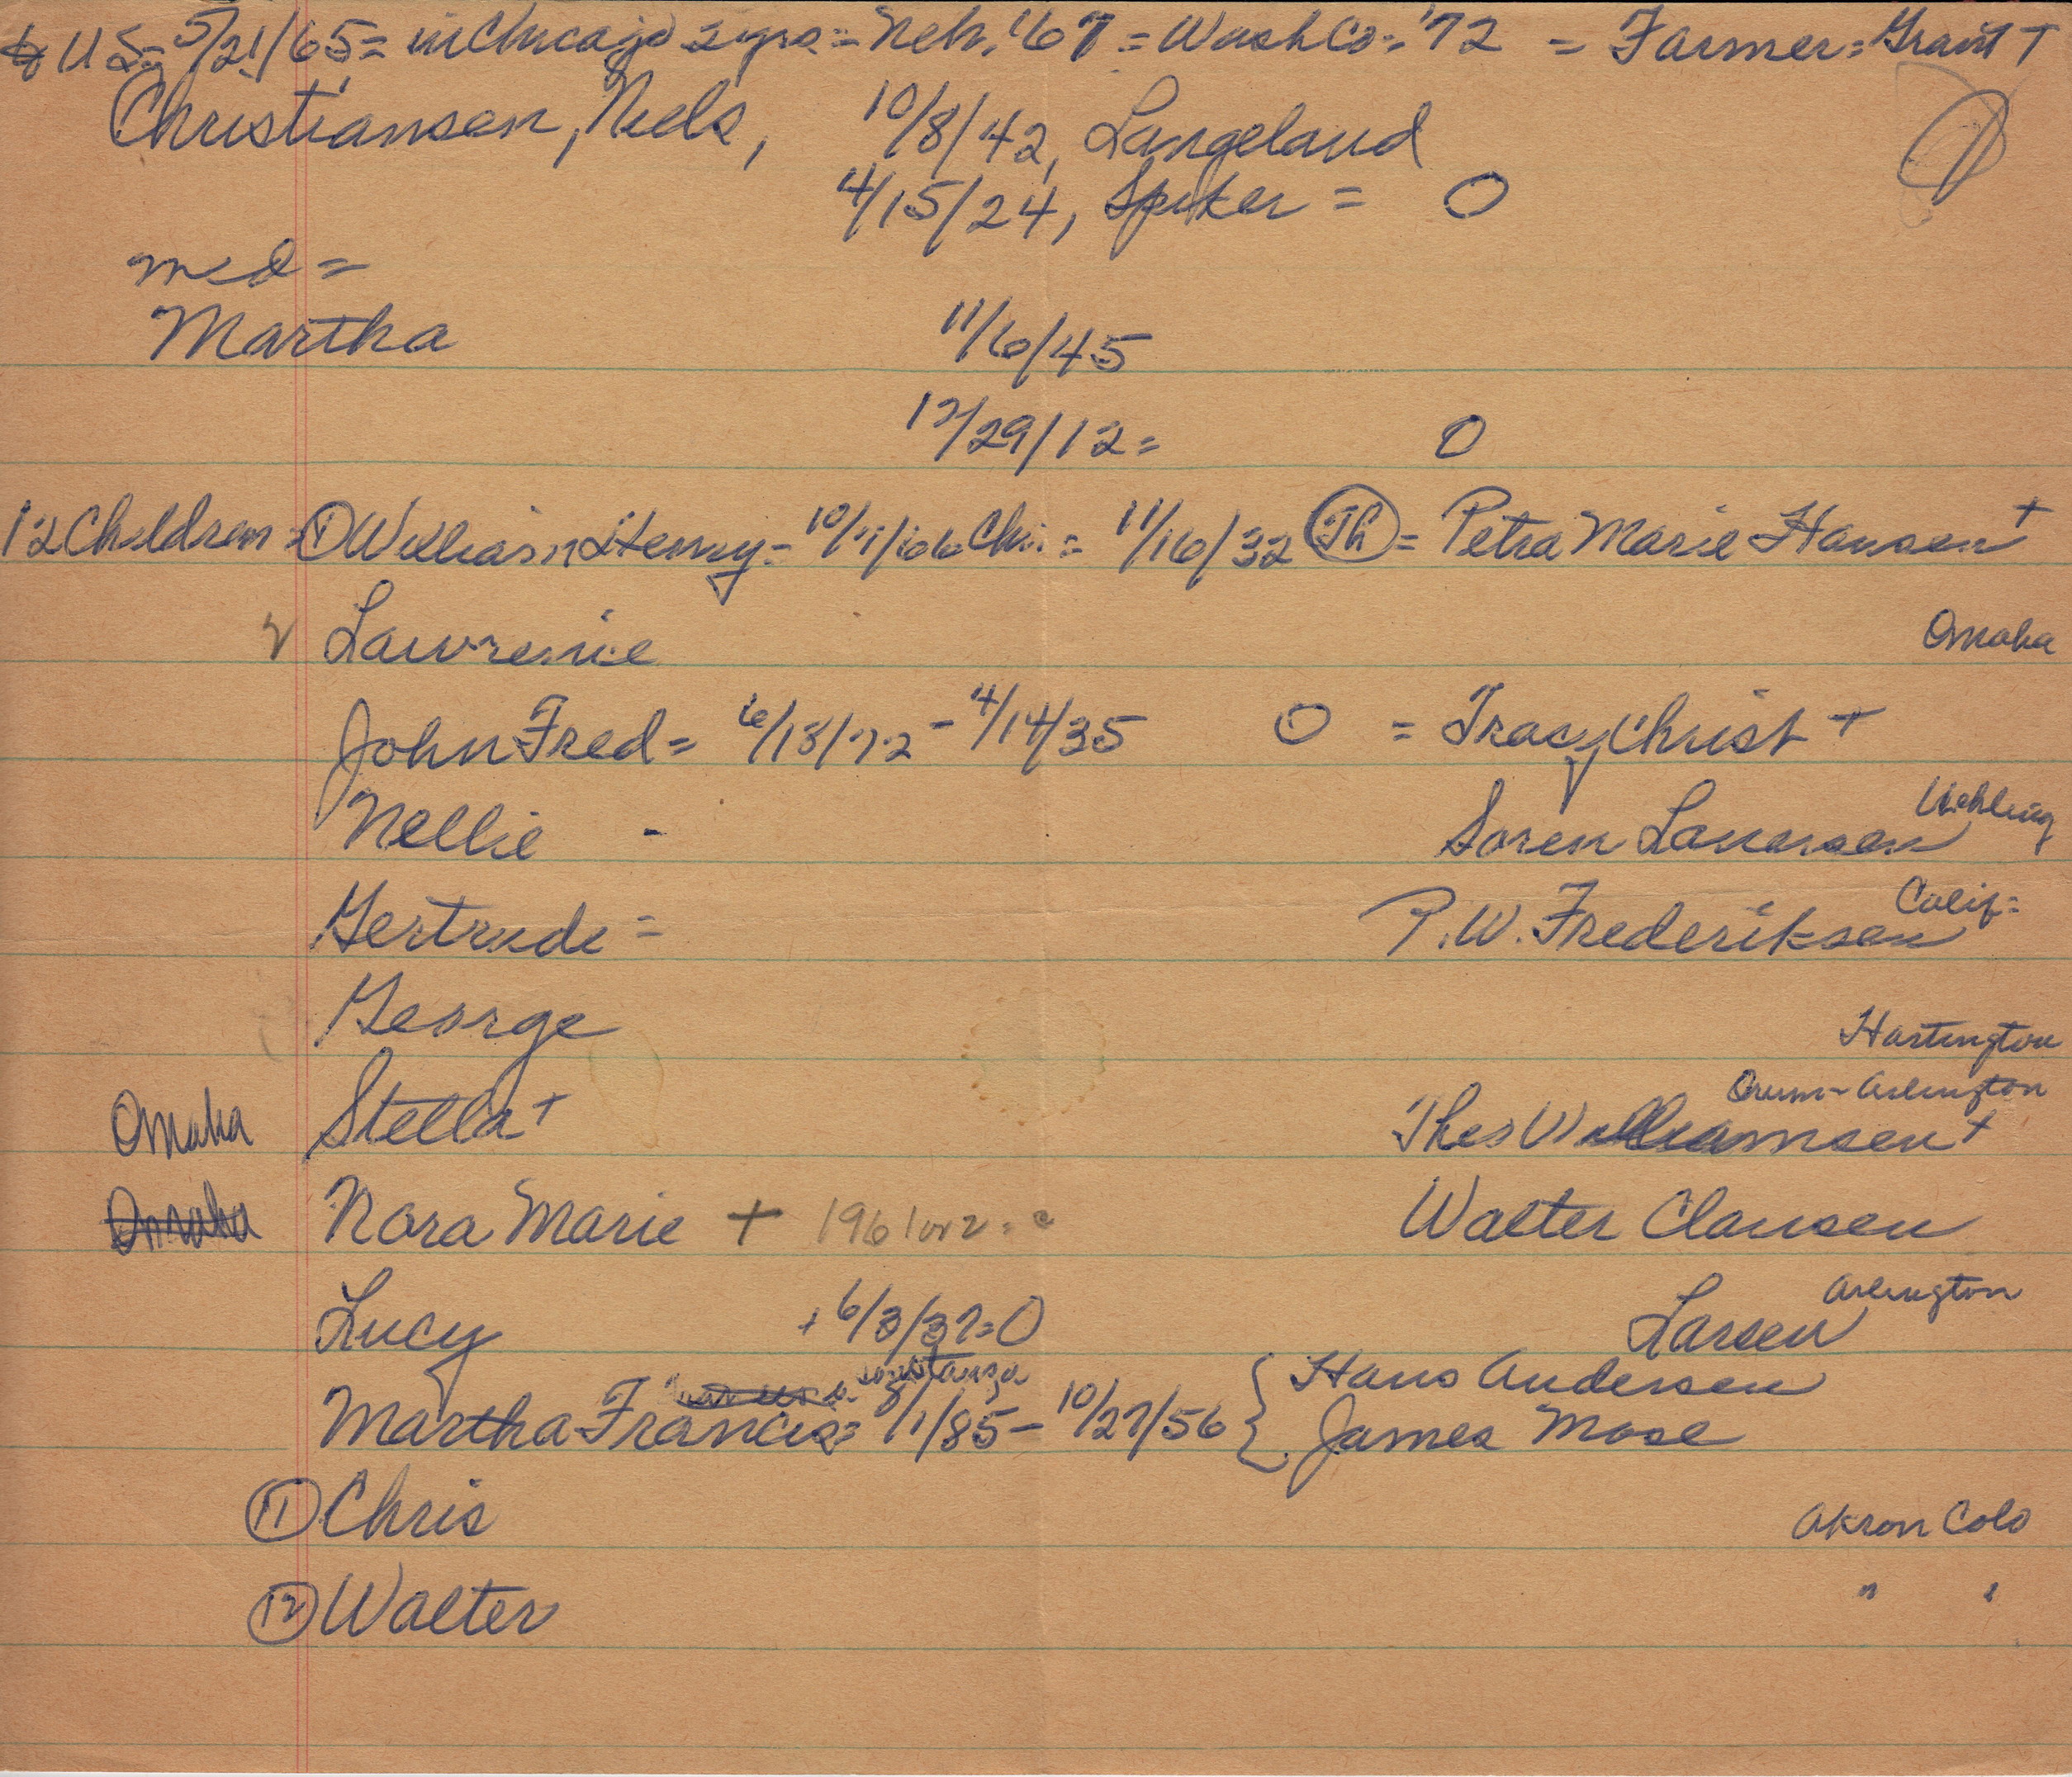 to US = 5/21/65 = in Chicago 2 yrs. = Neb. '67 = Wash Co. '72 = Farmer = Grant T
Christiansen, Neels, 10/8/42, Langeland
4/15/24, Spiker = O
med =
Martha 11/6/45
12/29/12 = O
12 Children = ① William Henry - 10/1/66 Chi. = 11/16/32 Th = Petra Marie Hansen +
2 Lawrence Omaha
John Fred = 6/18/72 - 4/14/35 O = Tracy Christ +
Nellie - Soren Laursen Uehling
Gertrude = P.W. Frederiksen Calif =
George Hartington
Omaha Stella + Thes Williamsen + Orum - Arlington
Omaha Nora Marie + 1961 or 2 = Walter Clausen
Lucy + 6/3/37 = O Larsen Arlington
constanza
Martha Francis = 8/1/85 - 10/27/56 { Hans Andersen
James Mose
⑪ Chris Akron Colo
⑫ Walter " "